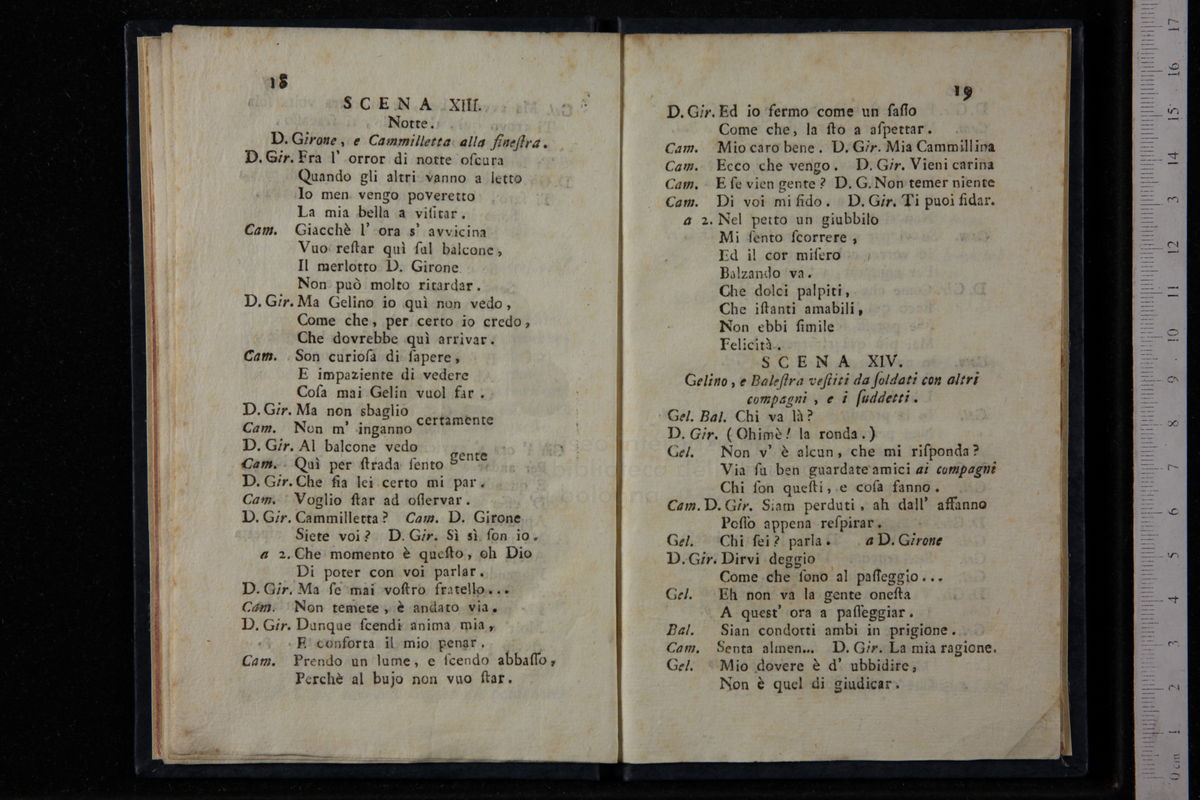 18
SCENA XIII.
Notte.
D. Girone, e Cammilletta alla fineſtra.
D. Gir. Fra l' orror di notte oſcura
Quando gli altri vanno a letto
Io men vengo poveretto
La mia bella a viſitar.
Cam. Giacchè l' ora s' avvicina
Vuo reſtar quì ſul balcone,
Il merlotto D. Girone
Non può molto ritardar.
D. Gir. Ma Gelino io quì non vedo,
Come che, per certo io credo,
Che dovrebbe quì arrivar.
Cam. Son curioſa di ſapere,
E impaziente di vedere
Coſa mai Gelin vuol far.
D. Gir. Ma non sbaglio
certamente
Cam. Non m' inganno
D. Gir. Al balcone vedo
gente
Cam. Quì per ſtrada ſento
D. Gir. Che ſia lei certo mi par.
Cam. Voglio ſtar ad oſſervar.
D. Gir. Cammilletta? Cam. D. Girone
Siete voi? D. Gir. Sì sì ſon io.
a 2. Che momento è queſto, oh Dio
Di poter con voi parlar.
D. Gir. Ma ſe mai voſtro fratello...
Cam. Non temete, è andato via.
D. Gir. Dunque ſcendi anima mia,
E conforta il mio penar.
Cam. Prendo un lume, e ſcendo abbaſſo,
Perchè al bujo non vuo ſtar.
19
D. Gir. Ed io fermo come un ſaſſo
Come che, la ſto a aſpettar.
Cam. Mio caro bene. D. Gir. Mia Cammillina
Cam. Ecco che vengo. D. Gir. Vieni carina
Cam. E ſe vien gente? D. G. Non temer niente
Cam. Di voi mi fido. D. Gir. Ti puoi fidar.
a 2. Nel petto un giubbilo
Mi ſento ſcorrere,
Ed il cor miſero
Balzando va.
Che dolci palpiti,
Che iſtanti amabili,
Non ebbi ſimile
Felicità.
SCENA XIV.
Gelino, e Baleſtra veſtiti da ſoldati con altri
compagni, e i ſuddetti.
Gel. Bal. Chi va là?
D. Gir. (Ohimè! la ronda.)
Gel. Non v' è alcun, che mi riſponda?
Via ſu ben guardate amici ai compagni
Chi ſon queſti, e coſa fanno.
Cam. D. Gir. Siam perduti, ah dall' affanno
Poſſo appena reſpirar.
Gel. Chi ſei? parla. a D. Girone
D. Gir. Dirvi deggio
Come che ſono al paſſeggio...
Gel. Eh non va la gente oneſta
A quest' ora a paſſeggiar.
Bal. Sian condotti ambi in prigione.
Cam. Senta almen... D. Gir. La mia ragione.
Gel. Mio dovere è d' ubbidire,
Non è quel di giudicar.
0 cm 1 2 3 4 5 6 7 8 9 10 11 12 3 14 15 16 17